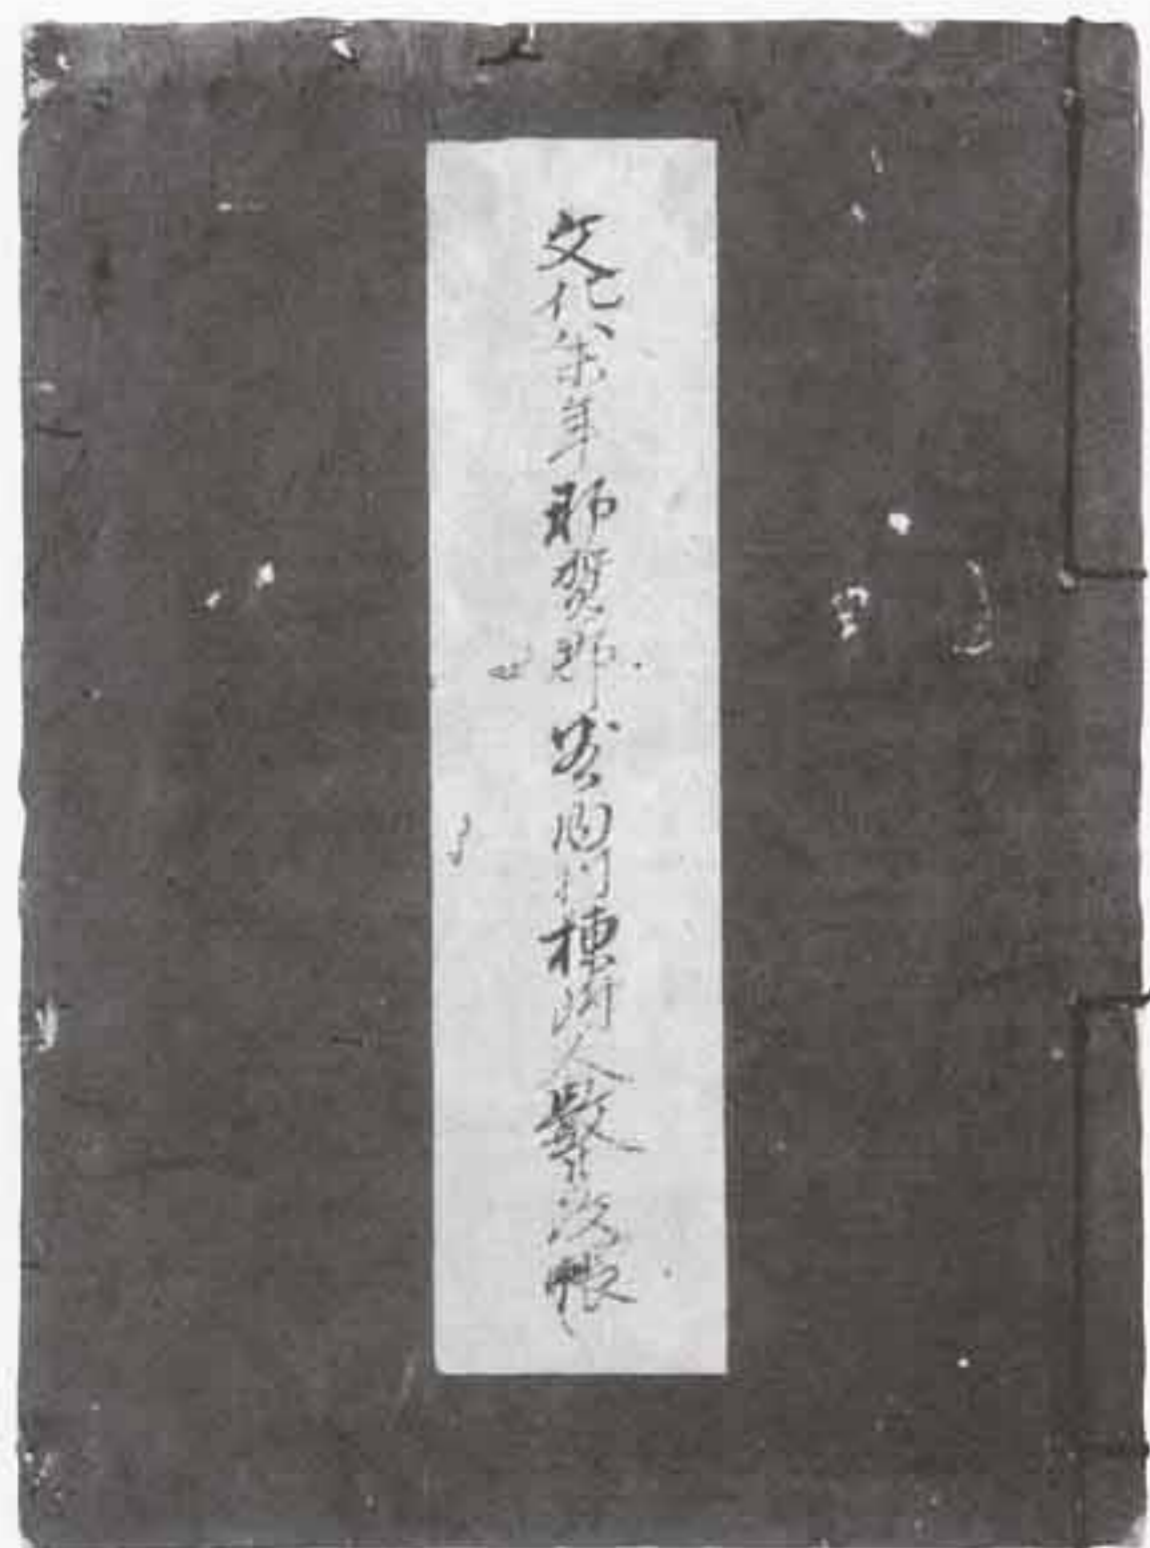 文化八未年那賀郡谷内村棟附人数改帳